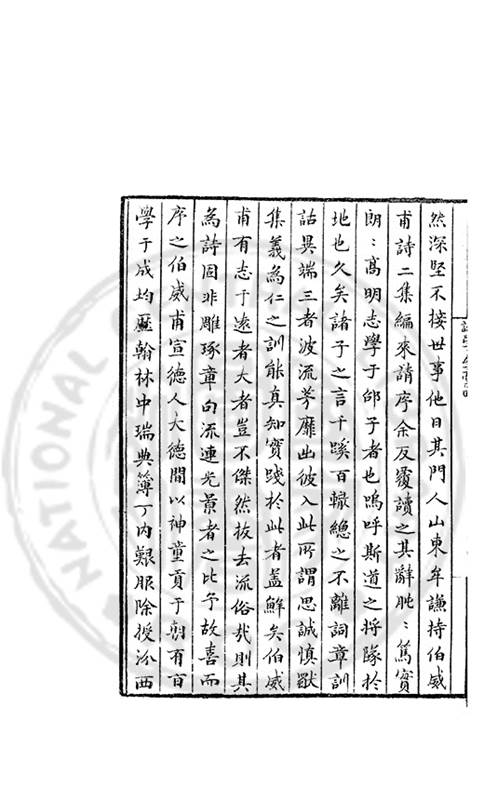 然深堅不接世事他日其門人山東牟謙持伯威
甫詩二集編來請序余反覆讀之其辭肫〻篤實
朗〻高明志學于邵子者也嗚呼斯道之將隊於
地也久矣諸子之言千蹊百轍總之不離詞章訓
詁異端三者波流茅靡出彼入此所謂思誠慎獨
集義為仁之訓能真知實踐於此者蓋鮮矣伯威
甫有志于遠者大者豈不傑然拔去流俗哉則其
為詩固非雕琢章句流連光景者之比予故喜而
序之伯威甫宣德人大德間以神童貢于朝有旨
學于成均歷翰林中瑞典簿丁內艱服除授汾西
NATIONAL CENTRAL